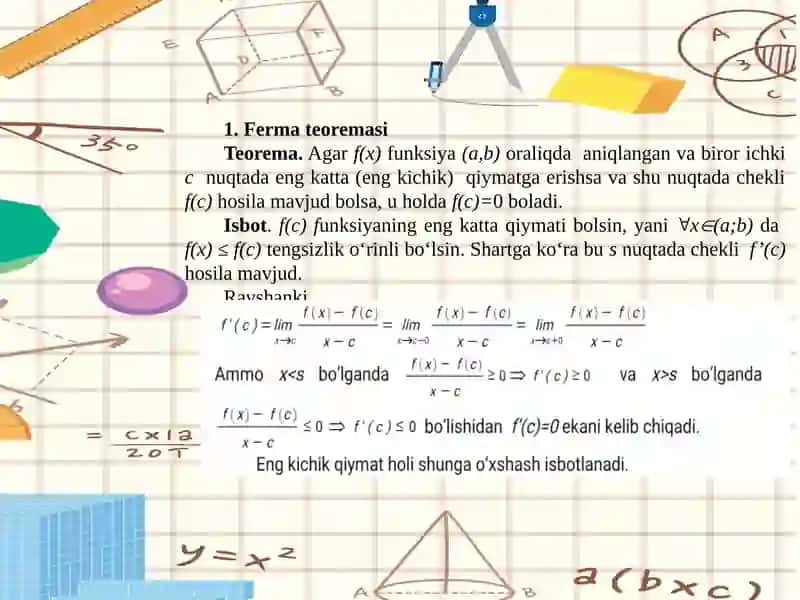 E
F
D
A
B
A
1
3
C
350
1. Ferma teoremasi
Teorema. Agar f(x) funksiya (a,b) oraliqda aniqlangan va biror ichki
c nuqtada eng katta (eng kichik) qiymatga erishsa va shu nuqtada chekli
f(c) hosila mavjud bolsa, u holda f(c)=0 boladi.
Isbot. f(c) funksiyaning eng katta qiymati bolsin, yani ∀x∈(a;b) da
f(x) ≤ f(c) tengsizlik o‘rinli bo‘lsin. Shartga ko‘ra bu s nuqtada chekli f’(c)
hosila mavjud.
Ravshanki
f'(c)=lim x→c (f(x)−f(c))/(x−c) = lim x→c−0 (f(x)−f(c))/(x−c) = lim x→c+0 (f(x)−f(c))/(x−c)
Ammo x<s bo‘lganda (f(x)−f(c))/(x−c) ≥0⇒ f'(c)≥0 va x>s bo‘lganda
(f(x)−f(c))/(x−c) ≤0 ⇒ f'(c)≤0 bo‘lishidan f’(c)=0 ekani kelib chiqadi.
Eng kichik qiymat holi shunga o‘xshash isbotlanadi.
b
= cx1a
20T
y=x²
A
B
a(bxc)